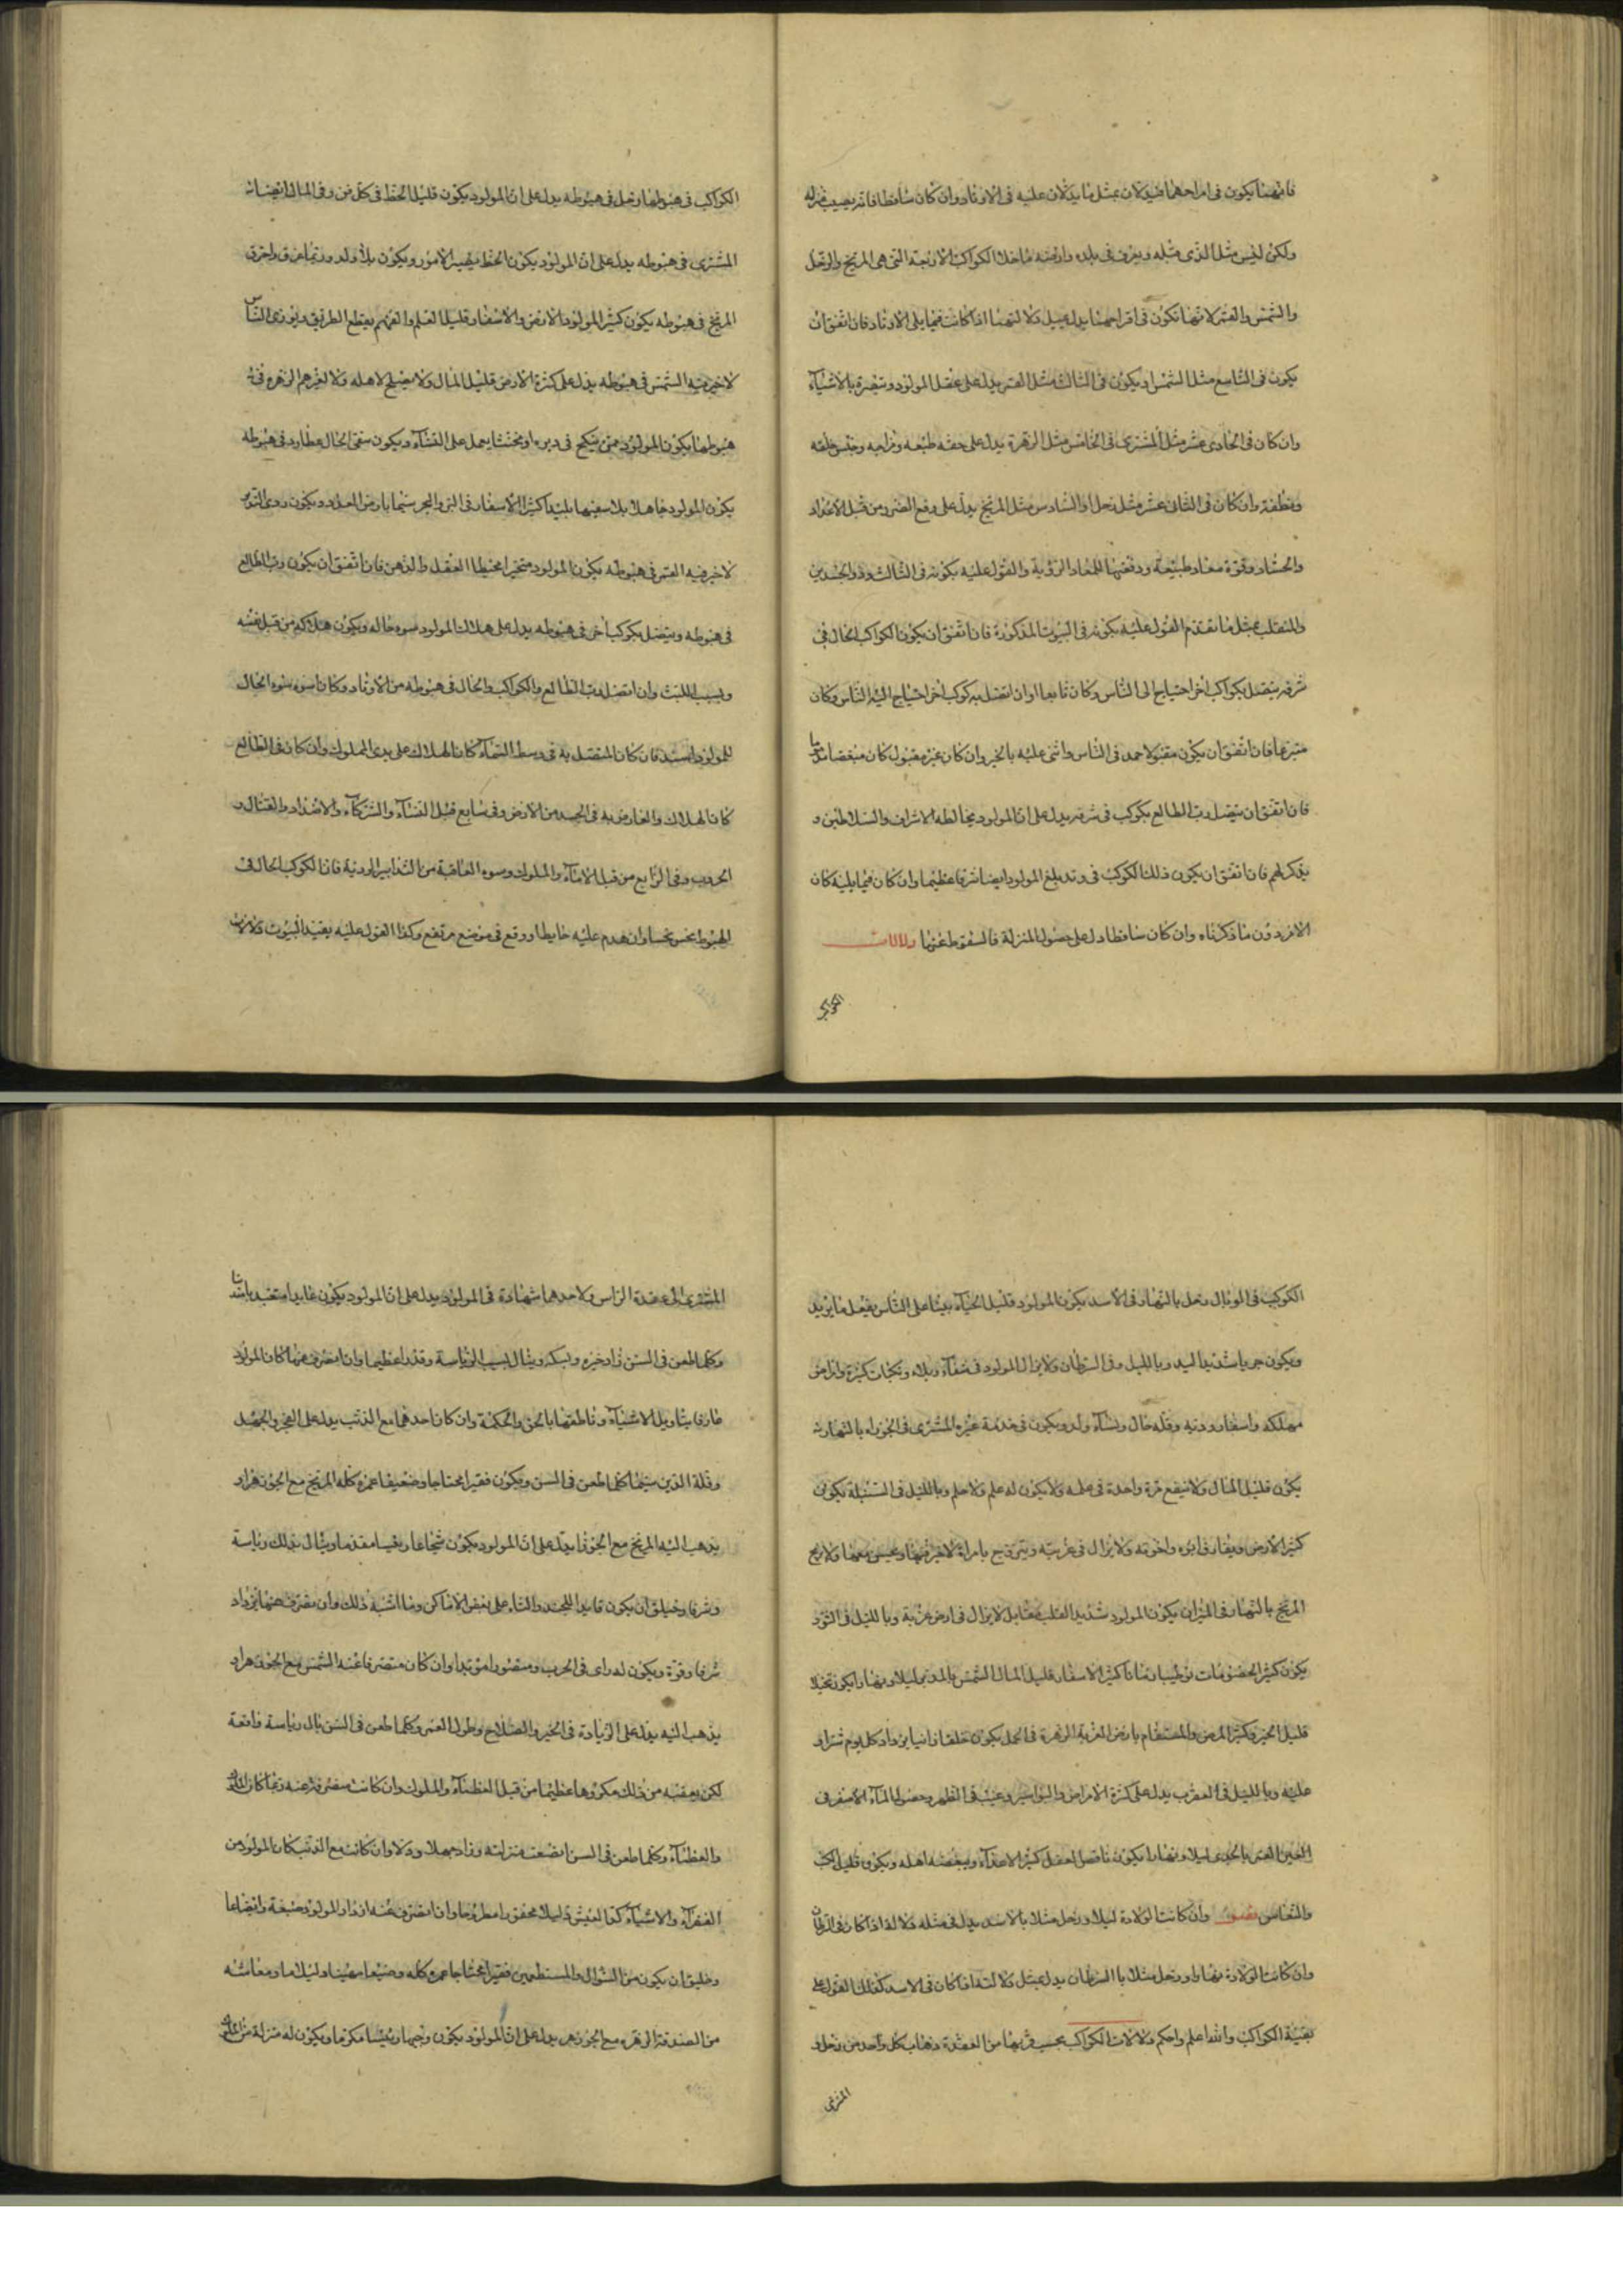 فانهما يكون في افراحهما فيدلان بمثل ما يدلان عليه في الاوتاد وان كان ساقطا فانه يصيب منزله
ولكن ليس مثل الذي قبله ويعرف في بلده وارضه ما خلا الكواكب الاربعة التي هي المريخ والزحل
والشمس والقمر لانها تكون في افراحهما يدل بمثل دلالتهما اذا كانت فيما يلي الاوتاد فان اتفق ان
يكون في التاسع مثل الشمس او يكون في الثالث مثل القمر يدل على عقل المولود وتبصره بالاشياء
وان كان في الحادي عشر مثل المشتري في الخامس مثل الزهرة يدل على خفه طبعه وحسن خلقه
ونظفه وان كان في الثاني عشر مثل زحل او السادس مثل المريخ يدل على دفع الضرر من قبل الاعداد
والحساد وقوة طبيعة والقول عليه بكونه في الثالث وذو الجسدين
والمنقلب بمثل ما تقدم القول عليه بكونه في البيوت المذكورة فان اتفق ان يكون الكواكب الحال في
شرفه يتصل بكواكب اخر احتاج الى الناس وكان تابعا وان اتصل به كوكب اخر احتاج اليه الناس وكان
متبوعا فان اتفق ان يكون مقبولا حمد في الناس واثنى عليه بالخير وان كان غير مقبول كان مبغضا
فان اتفق ان يتصل رب الطالع بكوكب في شرفه يدل على ان المولود يخالطه الاشراف والسلاطين و
يذكر لهم فان اتفق ان يكون ذلك الكوكب في وتد بلغ المولود ايضا شرفا عظيما وان كان فيما يليه كان
الامر دون ما ذكرناه وان كان ساقطا دل على حصول المنزلة فالسقوط عنها دلالات
الكواكب
الكواكب في هبوطها زحل في هبوطه يدل على ان المولود يكون قليل الحظ في كل فن وفي المال
المشتري في هبوطه يدل على ان المولود يكون الحظ الامور ويكون بلا ولد وربما غرق واحترق
المريخ في هبوطه يكون كثير المولود الارض والاسفار قليل العلم والفهم يقطع الطريق ويوذي الناس
لا خير فيه الشمس في هبوطه يدل على كثرة الارض قليل المال ولا يصلح لاهله ولا لغيرهم الزهره في
هبوطها يكون المولود ممن ينكح في دبره او مخنثا يعمل على النساء ويكون سقى الحال عطارد في هبوطه
يكون المولود جاهلا بلا سفيها بليدا كثير الاسفار في البر والبحر سيما بارض العدو ويكون
لا خير فيه القمر في هبوطه يكون المولود متحيرا مخبطا العقل والذهن فان اتفق ان يكون رب الطالع
في هبوطه ويتصل بكوكب اخر في هبوطه يدل على هلاك المولود سوء حاله ويكون هلاكه من قبل نفسه
وبسبب اللبث وان اتصل رب الطالع والكواكب والحال في هبوطه من الاوتاد وكان اسوه سوء الحال
للمولود اشد فان كان المتصل به في وسط السماء كان الهلاك على يدي الملوك وان كان في الطالع
كان الهلاك والعارض به في الجسد من الارض وفي سابع قبل النساء والشركاء والاضداد والقتال و
الحروب وفي الرابع من قبل الاباء والملوك وسوء العاقبة من التدابير الردية فان الكوكب الحال في
الهبوط نحس نحسا وان هدم عليه حايطا ووقع في موضع مرتفع وكذا القول عليه بقية البيوت دلالات
الكوكب في الوبال زحل بالنهار في الاسد يكون المولود قليل الحياء على الناس يفعل ما يريد
ويكون جريا شديد اليد وبالليل وفي السرطان ولا يزال المولود في شقاء وبلاء ونكبات كثيرة وامراض
مهلكه واسفار ردية وقله حال ونساء ولد ويكون في خدمة غيره المشتري في الجوزاء بالنهار
يكون قليل المال ولا ينفع مرة واحدة في علمه ولا يكون له علم ولا حلم وبالليل في السنبلة يكون
كثير الارض ويفارق ابوه واخوته ولا يزال في غربته ويتزوج بامراة لا خير فيها ويعيش معها ولا ربح
المريخ بالنهار في الميزان يكون المولود شديد القلب مقابل لا يزال في ارض غربة وبالليل في الثور
يكون كثير الخصومات كثير الاسفار قليل المال الشمس بالدلو ليلا ونهارا يكون بخيلا
قليل الخير وكثير المرض والسقام بارض الغربة الزهرة في الحمل يكون خلقا زانيا يزداد كل يوم شرا و
عليه وبالليل في العقرب يدل على كثرة الامراض والبواسير وعيب في الظهر وحصول الماء الاصفر في
العين القمر بالجدي ليلا ونهارا يكون ناقص العقل كثير الاعداء ويبغضه اهله ويكون قليل
والنعاس وان كانت الولادة ليلا وزحل مثلا بالاسد يدل في مثله دلالة اذا كان في السرطان
وان كانت الولادة نهارا وزحل مثلا بالسرطان يدل بمثل دلالته اذا كان في الاسد كذلك القول على
بقية الكواكب والله اعلم واحكم دلالات الكواكب بحسب قربها من العقدة ذهاب كل واحد من زحل و
المشتري
المشتري الى عقدة الراس ولاحدهما شهادة في المولود يدل على ان المولود يكون عابدا متعبدا
وكلما طعن في السن زاد خيره ونسكه وينال بسبب الرياسة وقدرا عظيما وان انصرف عنها كان المولود
عارفا بتاويل الاشياء وناطقها بالحق والحكمة وان كان احدهما مع الذنب يدل على الفجر والجهل
وقلة الدين سيما كلما طعن في السن ويكون فقيرا محتاجا وضعيفا عمره كله المريخ مع الجوزهر او
يذهب اليه المريخ مع الجوزهر يدل على ان المولود يكون شجاعا رئيسا مقدما وينال بذلك رياسة
وشرفا وخليق ان يكون قايدا للجند والتناء على بعض الاماكن وما اشبه ذلك وان تصرف عنها يزداد
شرفا وقوة ويكون له راي في الحرب ومنصورا مؤيدا وان كان متصرفا عنه الشمس مع الجوزهر او
يذهب اليه يدل على الزيادة في الخير والصلاح وطول العمر وكلما طعن في السن نال رياسة واقعة
لكن يعقبه من ذلك مكروها عظيما من قبل العظماء والملوك وان كانت منصرفة عنه ربما كان
والعظماء وكلما طعن في السن اضعف منزلته وزاد جهلا وذلا وان كانت مع الذنب كان المولود من
الفقراء والاشياء كد العيش ذليلا محقورا مطروحا وان انصرف عنه ازداد المولود ضعفة واتضاعا
وخليق ان يكون من السؤال والمستطعمين فقيرا محتاجا عمره كله وضيعا مهينا ذليلا ومعاشه
من الصدقة الزهره مع الجوزهر يدل على ان المولود يكون وجيها رئيسا مكرما ويكون له منزلة من